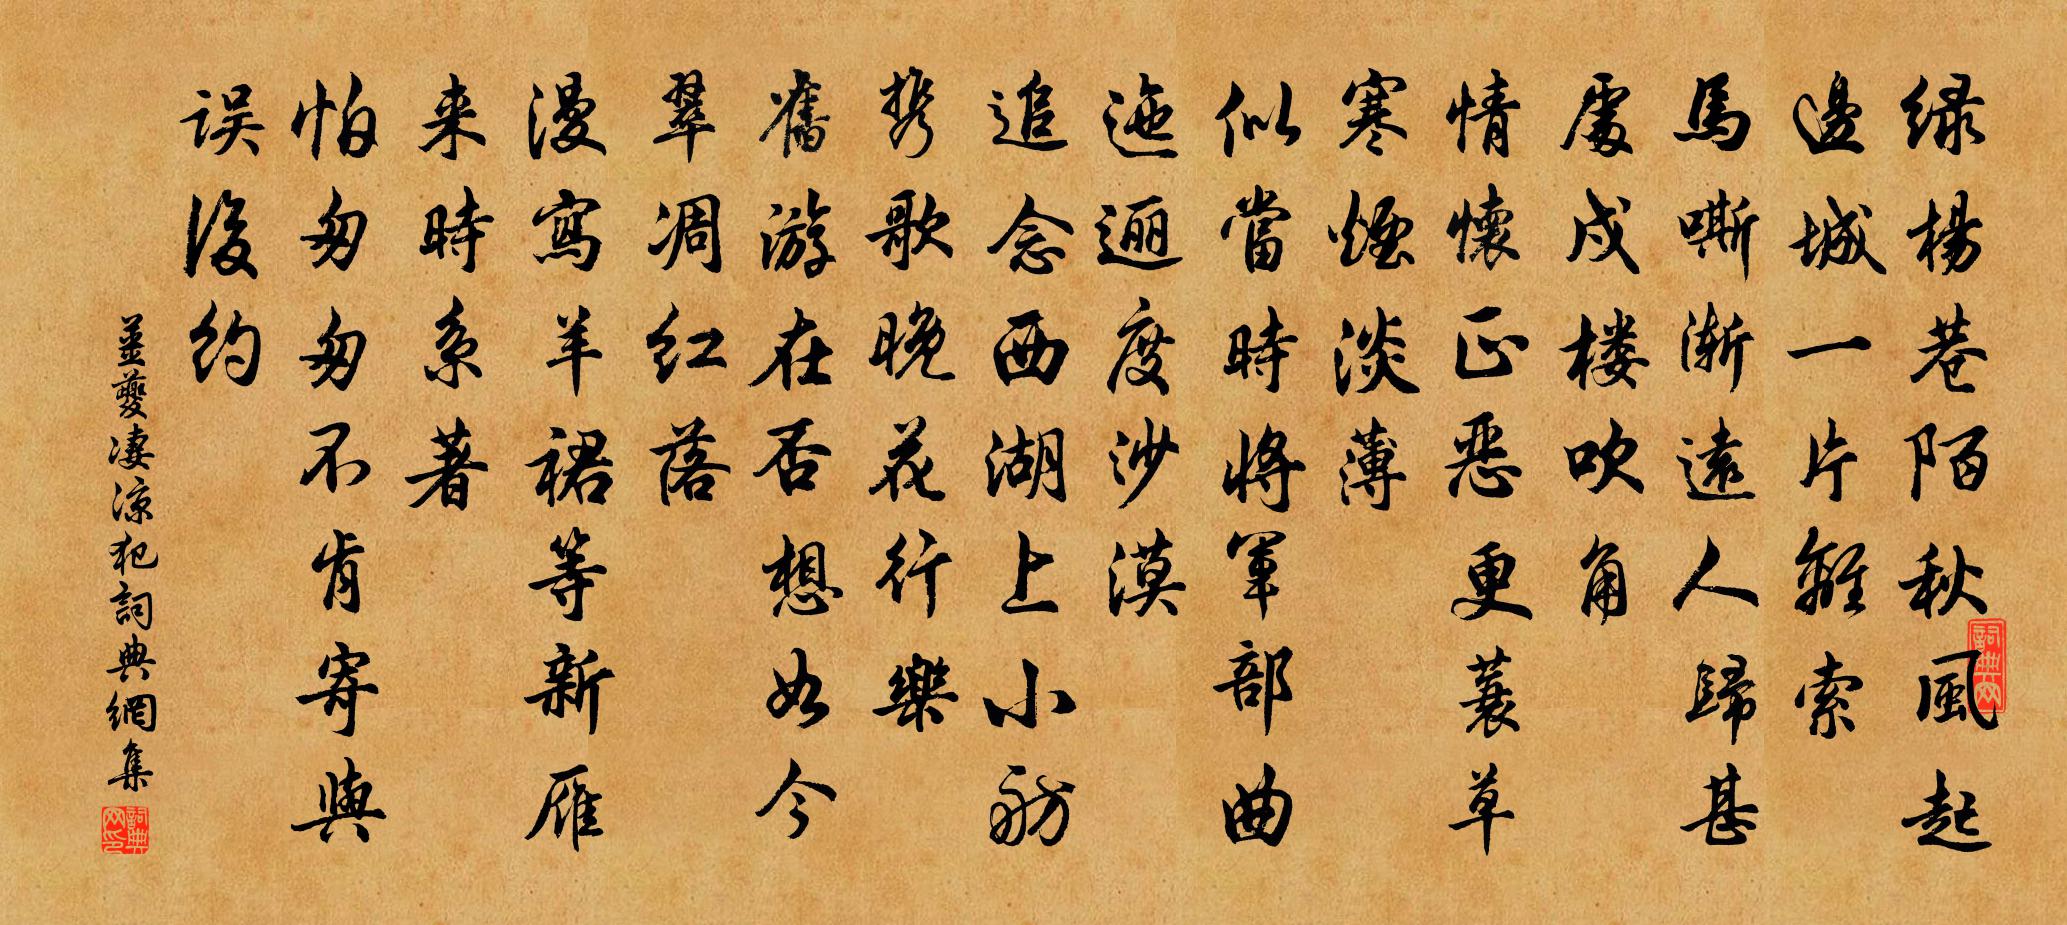 绿楊巷陌秋風起
邊城一片離索
馬嘶渐遠人歸甚
處戍楼吹角
情懷正恶更蓑草
寒煙淡薄
似當時將軍部曲
迤逦度沙漠
追念西湖上小舫
携歌晚花行樂
舊游在否想如今
翠凋红落
漫寫羊裙等新雁
来時系著
怕匆匆不肯寄與
误後约
姜夔凄凉犯詞典網集
詞典网
詞典网印